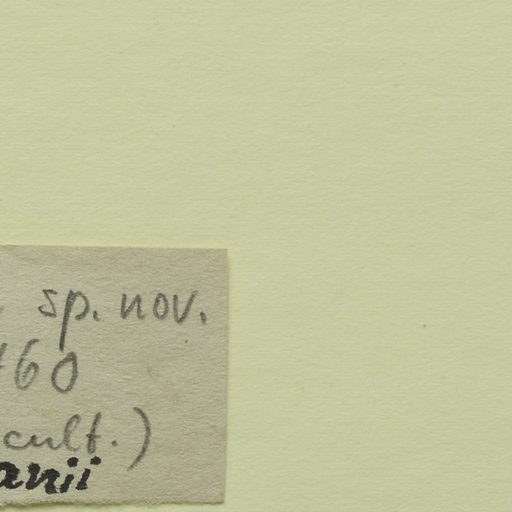 sp. nov.
460
cult.)
anii